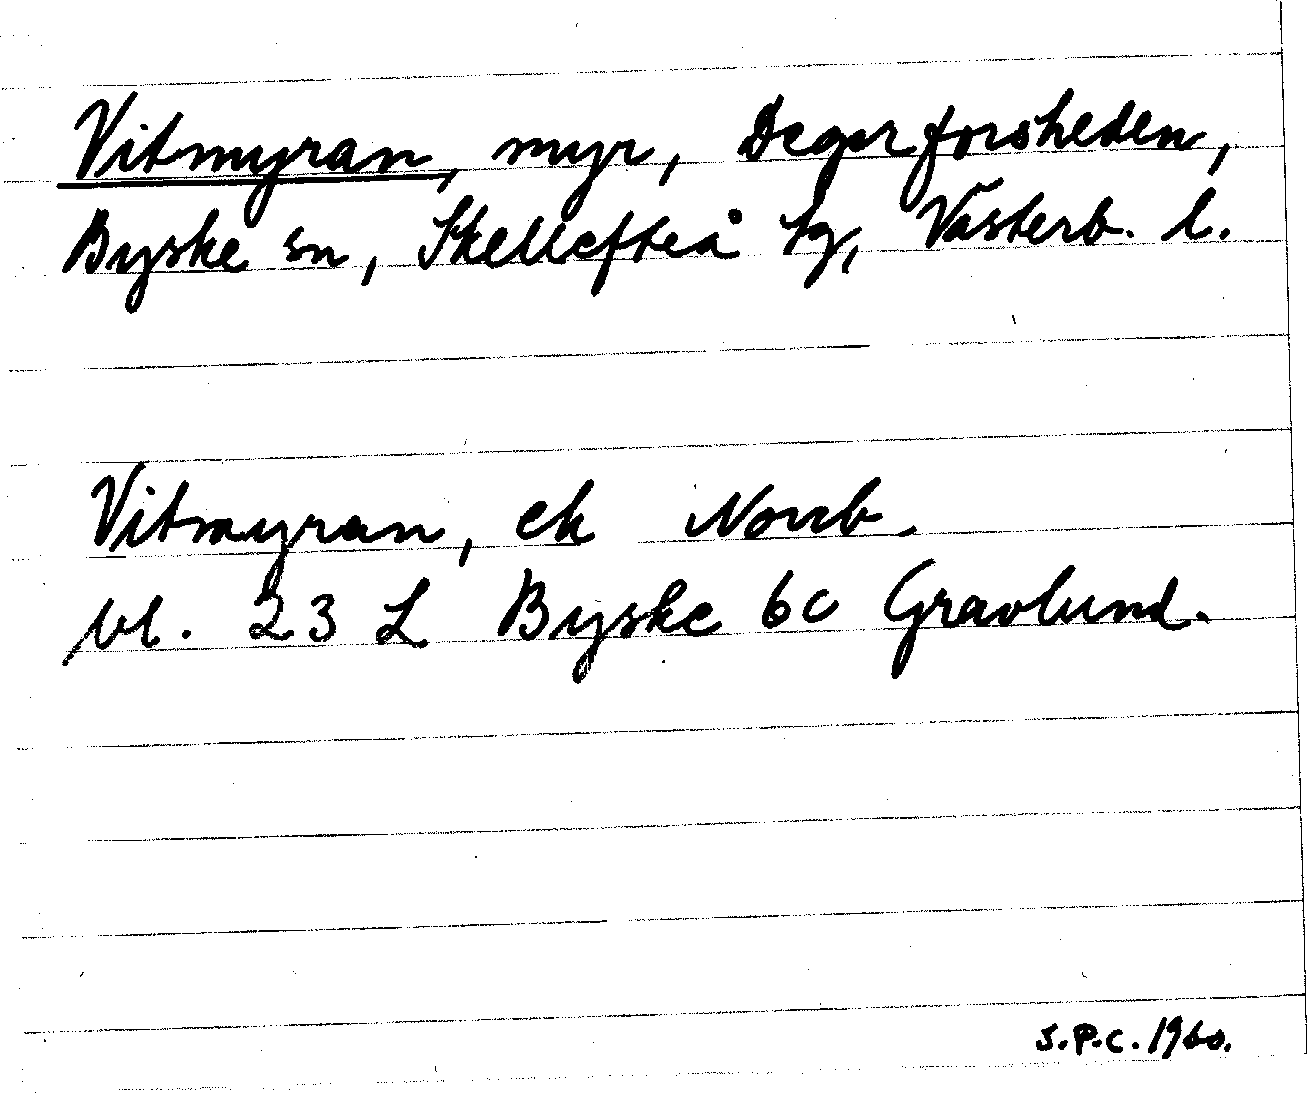 Vitmyran, myr, Degerforsheden,
Byske sn, Skellefteå tg, Västerb. l.
Vitmyran, ek Norrb.
bl. 23 L Byske 6c Gravlund.
S.P.C. 1960.